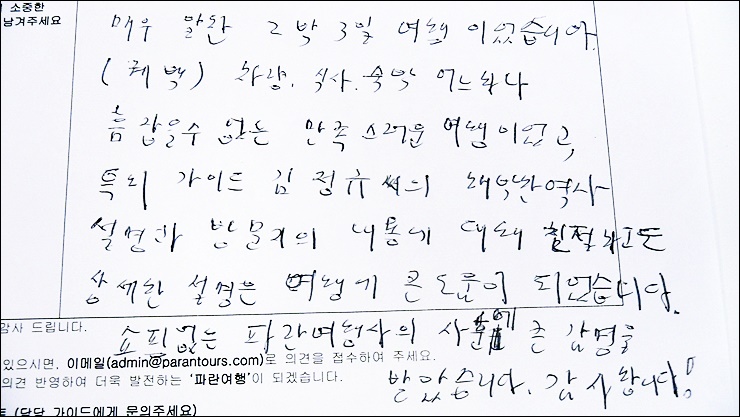 소중한
남겨주세요
매우 알찬 2박 3일 여행 이었습니다.
(퀘백) 차량. 식사. 숙박 어느하나
흠 잡을수 없는 만족스러운 여행이었고,
특히 가이드 김정규씨의 해박한 역사
설명과 방문지의 내용에 대해 친절하고도
상세한 설명은 여행에 큰 도움이 되었습니다.
감사 드립니다.
쇼핑없는 파란여행사의 에 큰 감명을
있으시면, 이메일(admin@parantours.com)로 의견을 접수하여 주세요.
의견 반영하여 더욱 발전하는 '파란여행'이 되겠습니다.
받았습니다. 감사합니다!
(담당 가이드에게 문의주세요)